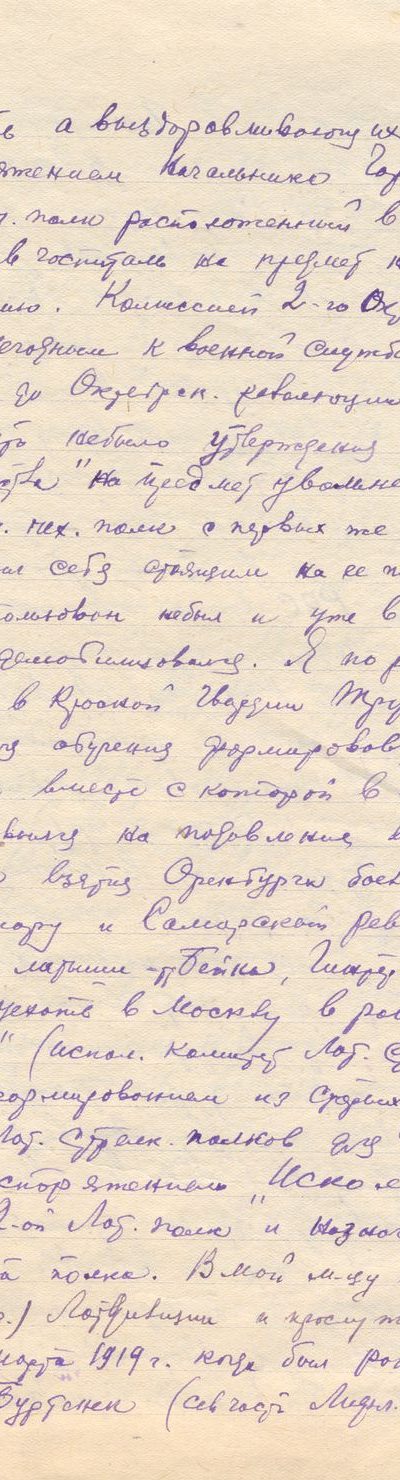 ь а выздоравливающих
яжением Начальника Гар
п. полк расположенный в
в госпиталь на предмет
ию. Комиссией 2-го Окр
негодным к военной служб
до Октябрск. революции
небыло утверждения
ства "на предмет увольне
. пех. полк с первых же
ил себя стоящим на ее п
пользован небыл и уже в
демобилизовался. Я по
в Красной Гвардии
я обучения формирова
вместе с которой в
на подавление
взятия Оренбурга
и Самарской рев
латыши
уехать в Москву в ра
" (испол. комитет Лат. С
формированием из
Лат. Стрелк. полков для
споряжением "Искол
2-ой Лат. полк и назнач
полка. В мой м-цу
) Лат. дивизии и прослуж
марта 1919 г. когда был
(сев часть